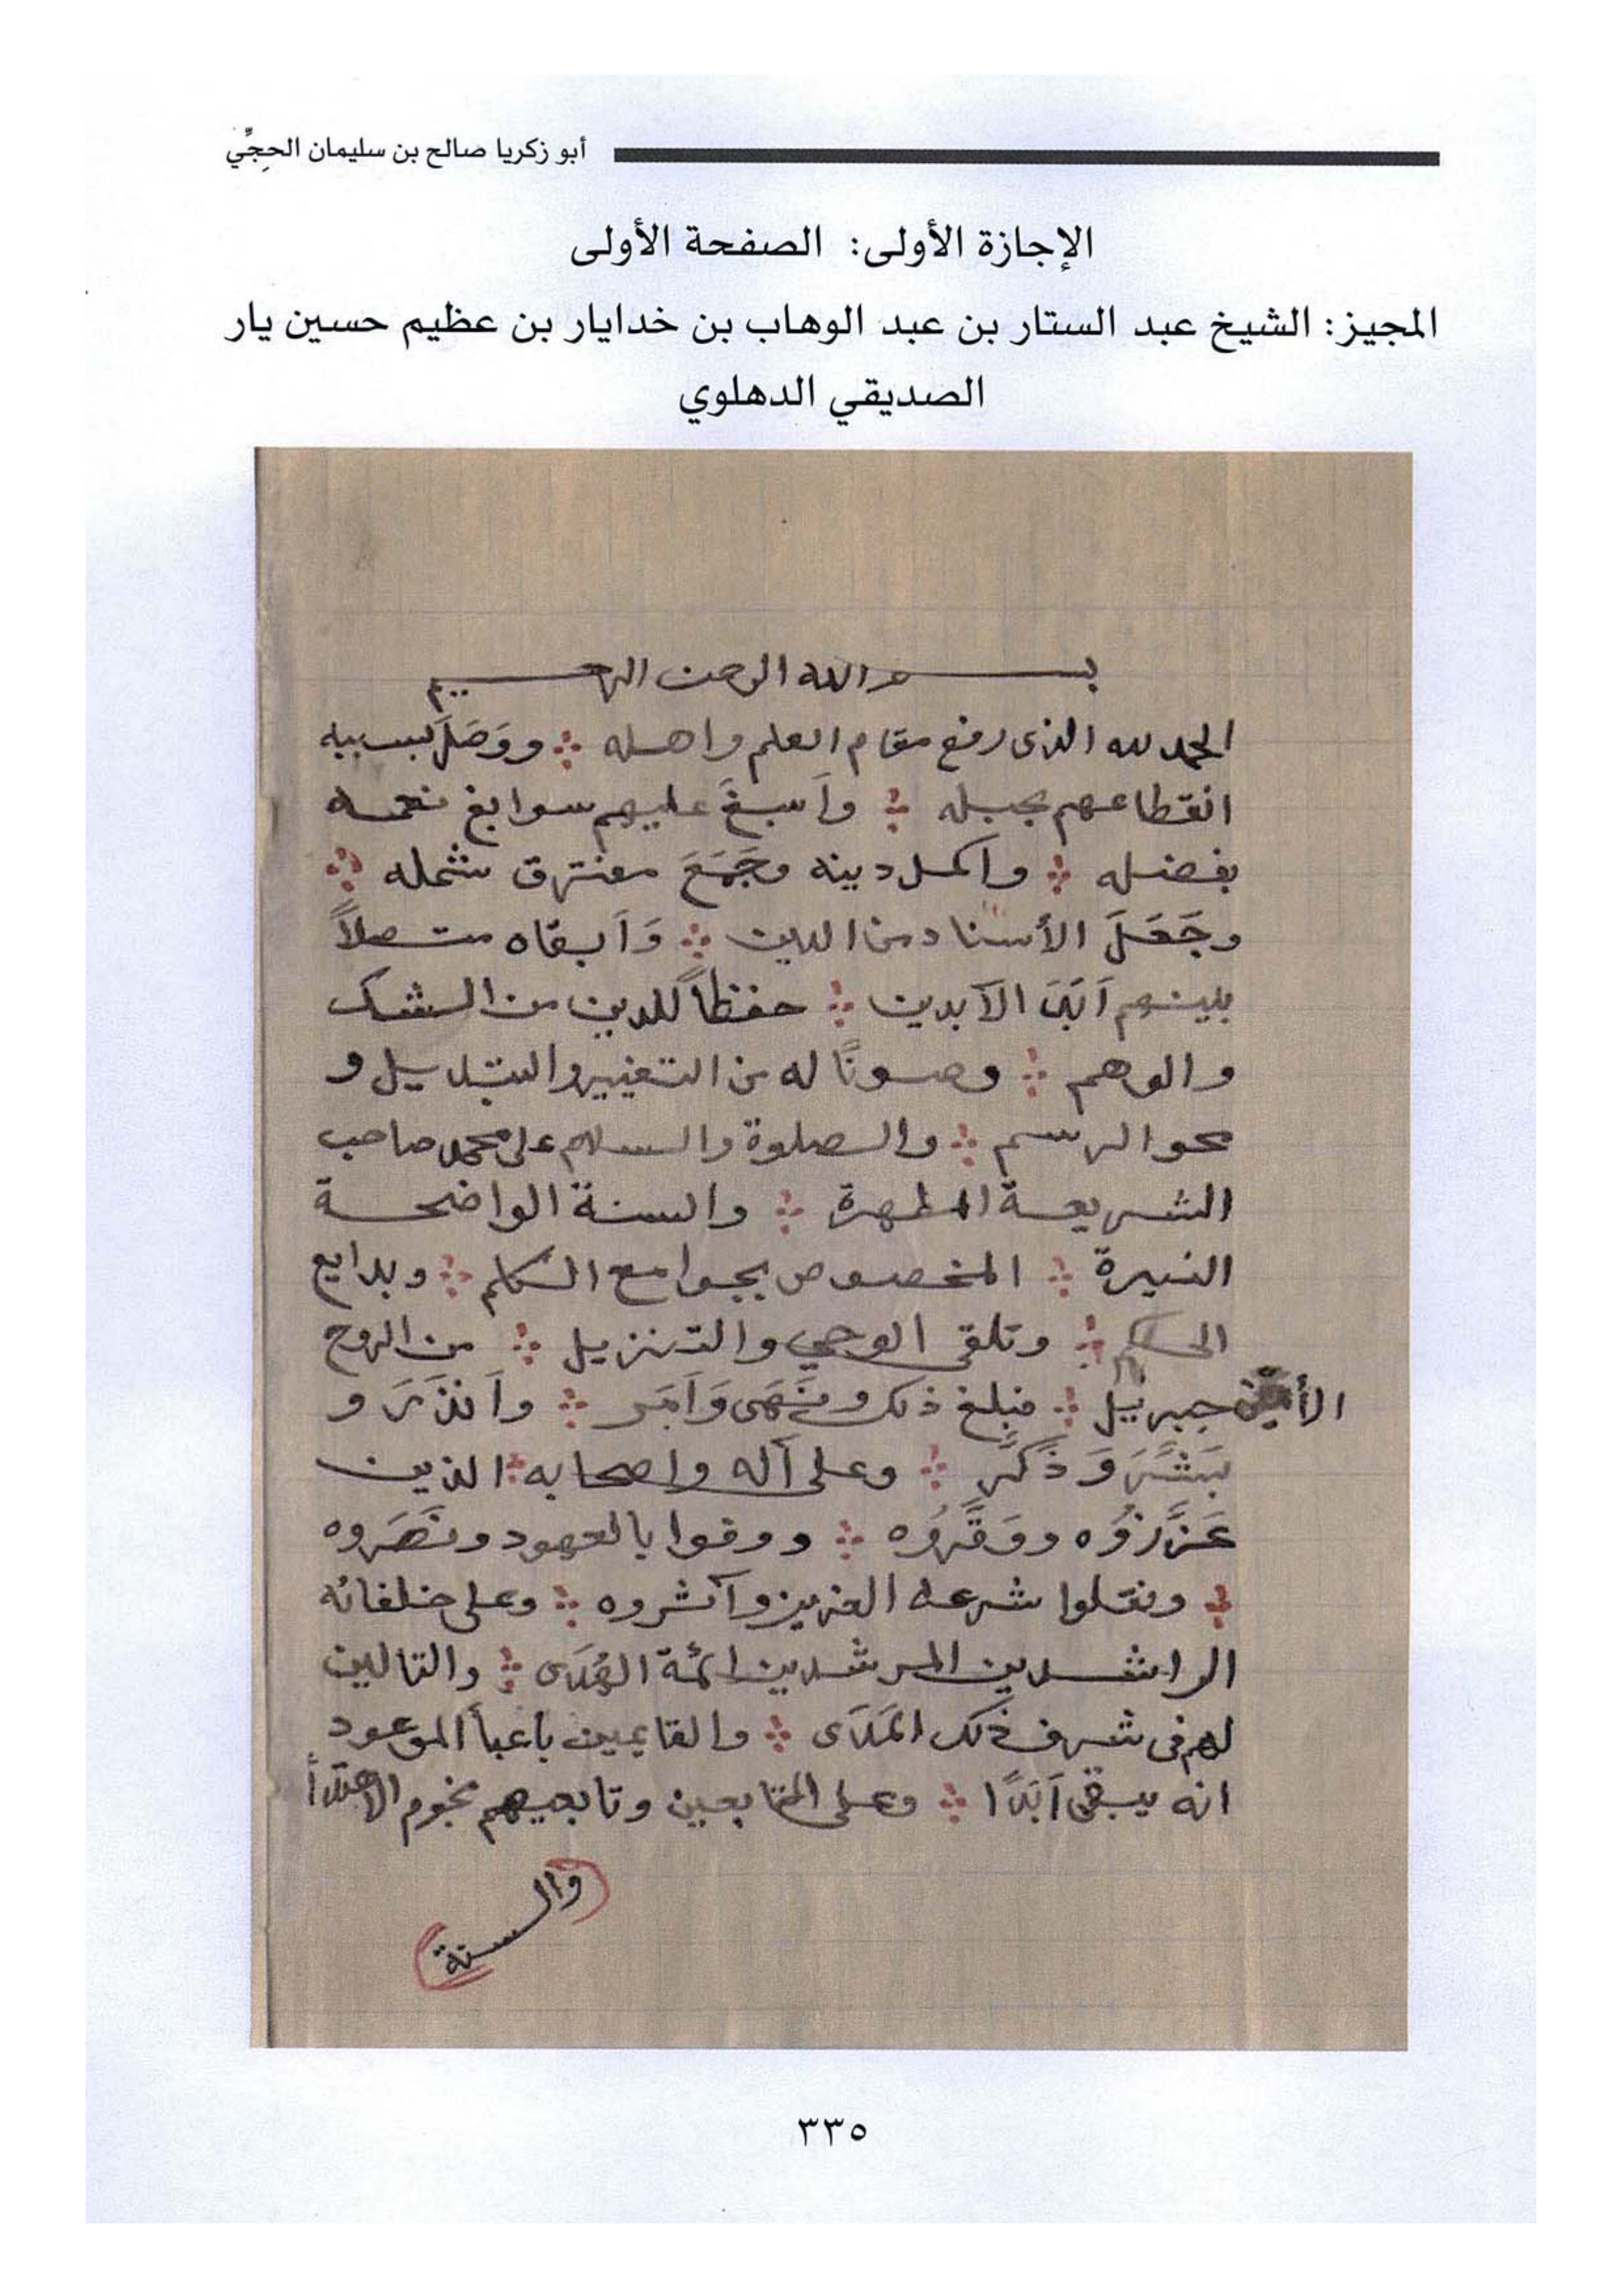 أبو زكريا صالح بن سليمان الحِجِّي
الإجازة الأولى: الصفحة الأولى
المجيز: الشيخ عبد الستار بن عبد الوهاب بن خدايار بن عظيم حسين يار
الصديقي الدهلوي
بسم الله الرحمن الرحيم
الحمد لله الذى رفع مقام العلم واهله ووَصَلَ بسببه
انقطاعهم بحبله وأسبغَ عليهم سوابغ نعمه
بفضله واكمل دينه وجَمَعَ مفترق شمله
وجَعَلَ الأسناد من الدين وَأبقاه متصلاً
بينهم أَبَدَ الآبدين حفظاً للدين من الشك
والوهم وصونًا له من التغيير والتبديل و
محو الرسم والصلوة والسلام على محمد صاحب
الشريعة المطهرة والسنة الواضحة
النيرة المخصوص بجوامع الكلم وبدايع
الحكم وتلقى الوحي والتنزيل من الروح
الأمين جبريل فبلغ ذلك ونَهَى وَأَمَر وأَنذَرَ و
بَشَّرَ وَذَكَّر وعلى آله واصحابه الذين
عَزَّرُوه ووَقَّرُوه ووفوا بالعهود ونَصَروه
ونقلوا شرعه العزيز وآثروه وعلى خلفائه
الراشدين المرشدين ائمة الهُدَى والتالين
لهم فى شرف ذلك المَدَى والقايمين بأعبأ الموعود
انه يبقى أَبَدًا وعلى التابعين وتابعيهم نجوم الاهتدأ
والسنة
٣٣٥